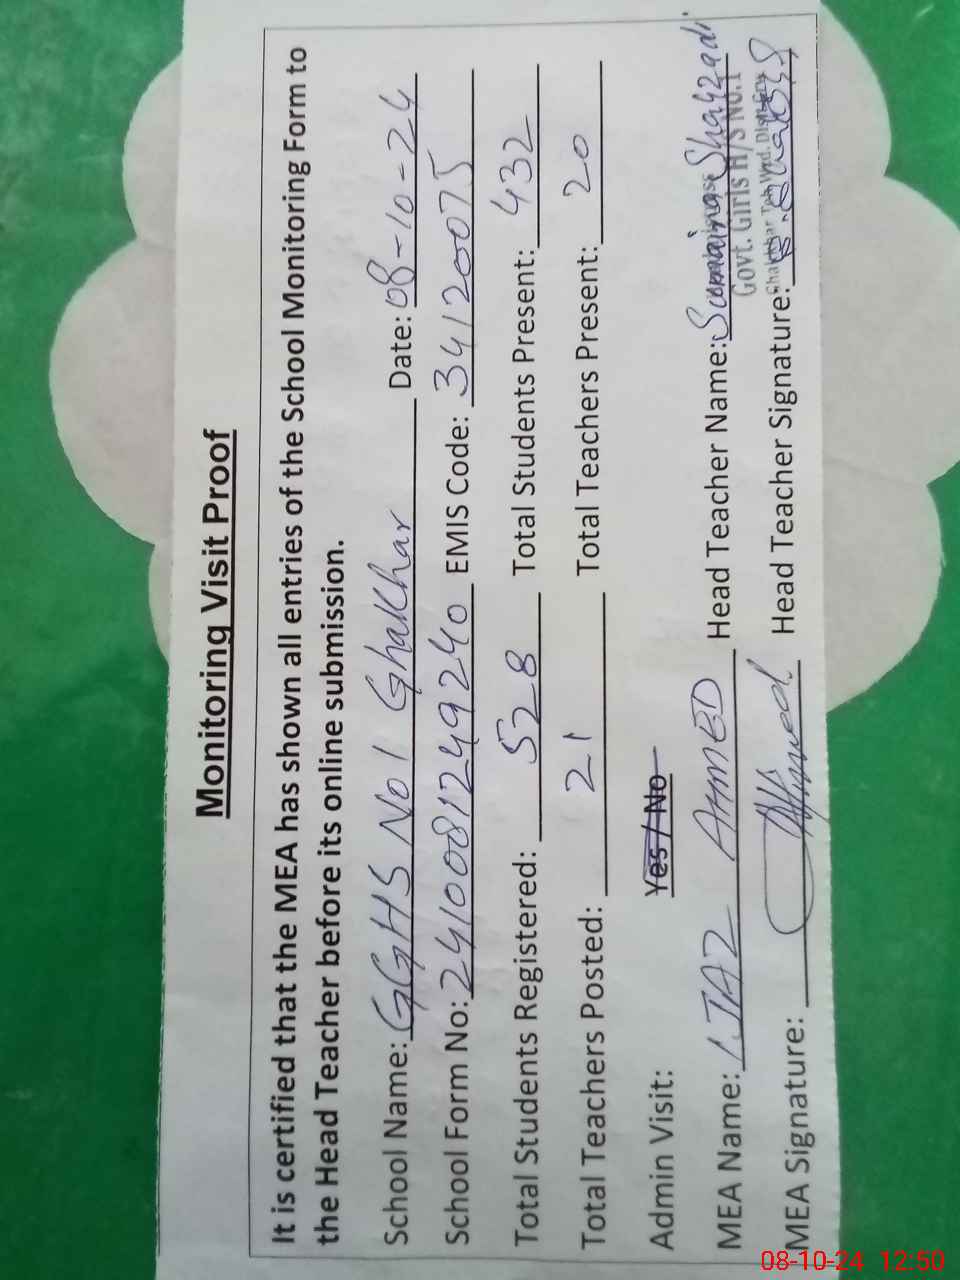 Monitoring Visit Proof
It is certified that the MEA has shown all entries of the School Monitoring Form to
the Head Teacher before its online submission.
School Name: GGHS No 1 Ghakhar Date: 08-10-24
School Form No: 241008124924o EMIS Code: 34120075
Total Students Registered: 528 Total Students Present: 432
Total Teachers Posted: 21 Total Teachers Present: 20
Admin Visit: Yes / No
MEA Name: IJAZ AHMED Head Teacher Name: Sumaira Shahzadi
Govt. Girls H/S No.1
MEA Signature: Ahmed Head Teacher Signature:
08-10-24 12:50